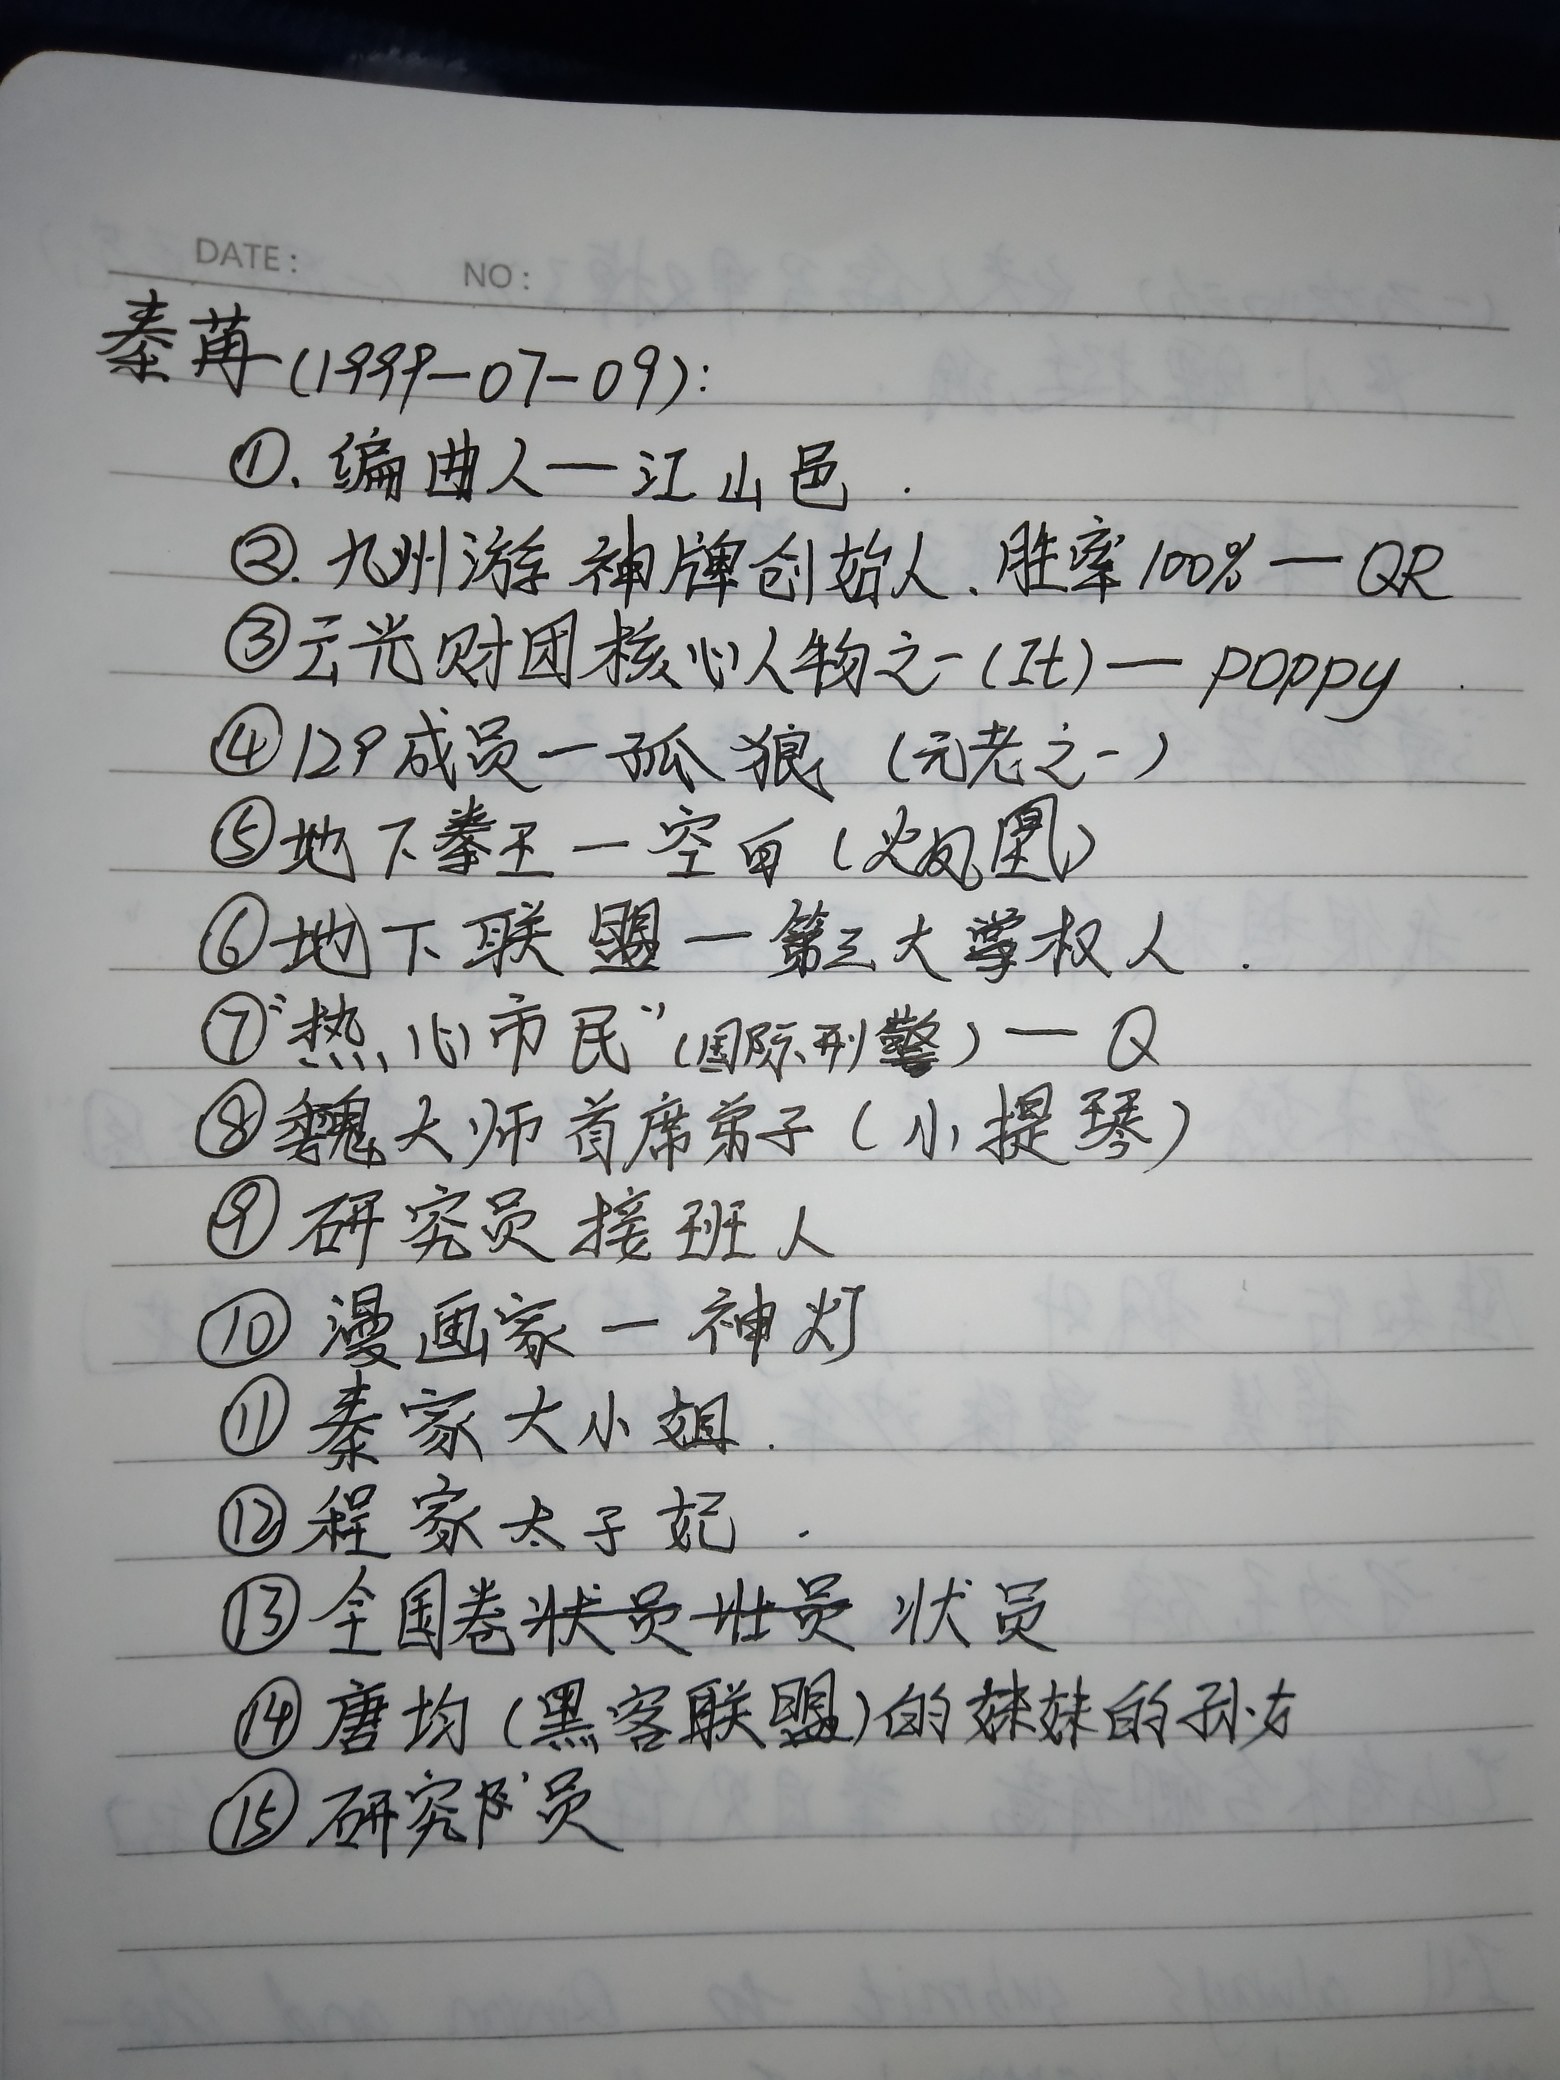 DATE:
NO:
秦苒(1999-07-09):
①.编曲人—江山邑.
②.九州游神牌创始人、胜率100%—QR
③云光财团核心人物之一(It)—poppy.
④129成员—孤狼(元老之一)
⑤地下拳王—空白(火凤凰)
⑥地下联盟—第三大掌权人.
⑦“热心市民”(国际刑警)—Q
⑧魏大师首席弟子(小提琴)
⑨研究员接班人
⑩漫画家—神灯
⑪秦家大小姐.
⑫程家太子妃.
⑬全国卷状员壮员 状员
⑭唐均(黑客联盟)的妹妹的孙女
⑮研究队员